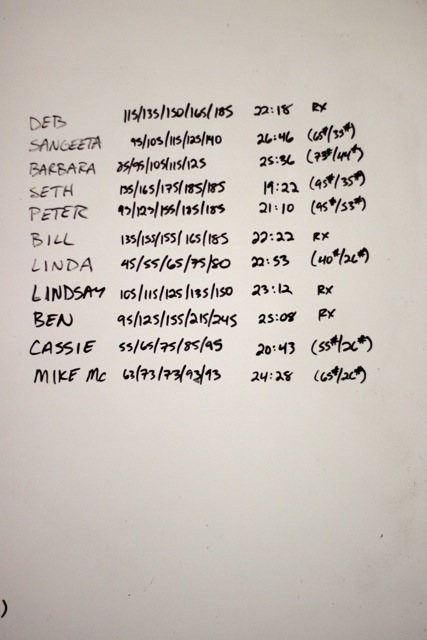 DEB 115/135/150/165/185 22:18 RX
SANGEETA 95/105/115/125/140 26:46 (65#/35#)
BARBARA 85/95/105/115/125 25:36 (73#/44#)
SETH 135/165/175/185/185 19:22 (95#/35#)
PETER 93/123/155/185/185 21:10 (95#/53#)
BILL 135/135/155/165/185 22:22 RX
LINDA 45/55/65/75/80 22:53 (40#/26#)
LINDSAY 105/115/125/135/150 23:12 RX
BEN 95/125/155/215/245 25:08 RX
CASSIE 55/65/75/85/95 20:43 (55#/26#)
MIKE Mc 63/73/73/93/93 24:28 (65#/26#)
)